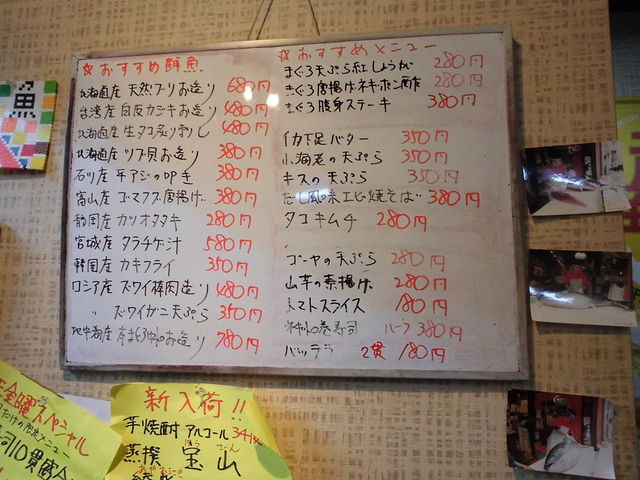 ☆おすすめ鮮魚
北海道産 天然ブリお造り 680円
台湾産 目皮カジキお造り 480円
北海道産 生タコ炙り刺し 480円
北海道産 ツブ貝お造り 380円
石川産 平アジのタタキ 380円
富山産 ゴマフグ唐揚げ 380円
静岡産 カツオタタキ 280円
宮城産 タラチゲ汁 580円
韓国産 カキフライ 350円
ロシア産 ズワイ棒肉造り 480円
〃 ズワイガニ天ぷら 350円
地中海産 本まぐろ中トロお造り 780円
☆おすすめメニュー
まぐろ天ぷら紅しょうが 280円
まぐろ唐揚げネギポン酢 280円
まぐろ腹身ステーキ 380円
イカ下足バター 350円
小海老の天ぷら 350円
キスの天ぷら 350円
焼そば 380円
タコキムチ 280円
ゴーヤの天ぷら 280円
山芋の素揚げ 280円
トマトスライス 180円
巻寿司 ハーフ 380円
バッテラ 2貫 180円
金曜スペシャル
新入荷!!
芋焼酎 アルコール34度
蒸撰 宝山
黒